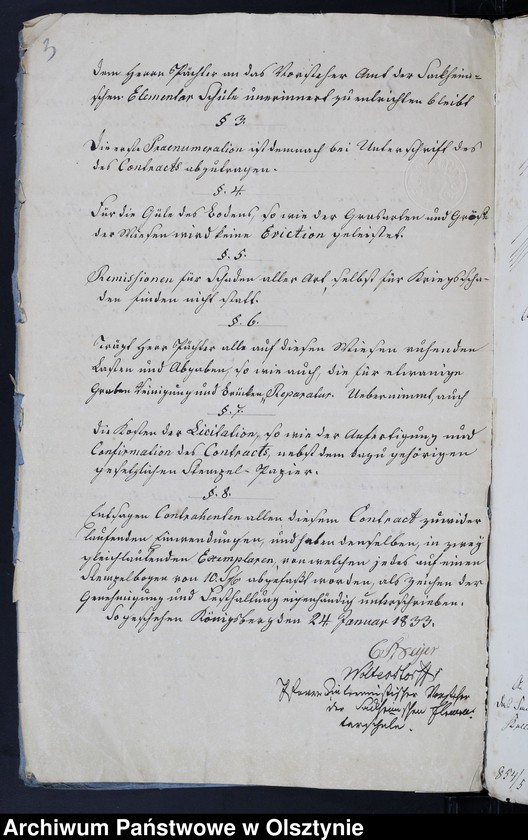 3
dem Herrn Pächter an das Vorsteher Amt der Sackheim-
schen Elementar Schule unerinnert zu entrichten bleibt
§ 3.
Die erste Praenumeration ist demnach bei Unterschrift des
des Contracts abzutragen.
§. 4.
Für die Güte des Bodens, so wie der Grasarten und Größe
der Wiesen wird keine Eviction geleistet.
§. 5.
Remissionen für Schaden aller Art, selbst für Kriegsscha-
den finden nicht statt.
§. 6.
Trägt Herr Pächter alle auf diesen Wiesen ruhenden
Lasten und Abgaben, so wie auch, die für etwanige
Graben Reinigung und Brücken Reparatur. Uebernimmt auch
§. 7.
die Kosten der Licitation, so wie der Anfertigung und
Confirmation des Contracts, nebst dem dazu gehörigen
gesetzlichen Stempel-Papier.
§. 8.
Entsagen Contrahenten allen diesem Contract zuwider
laufenden Einwendungen, und haben denselben, in zwey
gleichlautenden Exemplaren, von welchen jedes auf einen
Stempelbogen von 10. abgefaßt worden, als Zeichen der
Genehmigung und Festhaltung eigenhändig unterschrieben.
So geschehen Königsberg den 24 Januar 1833.
Woltersdorff
Pfarrer der
der Sackheimschen Elemen-
tarschule.
854/5
Archiwum Państwowe w Olsztynie